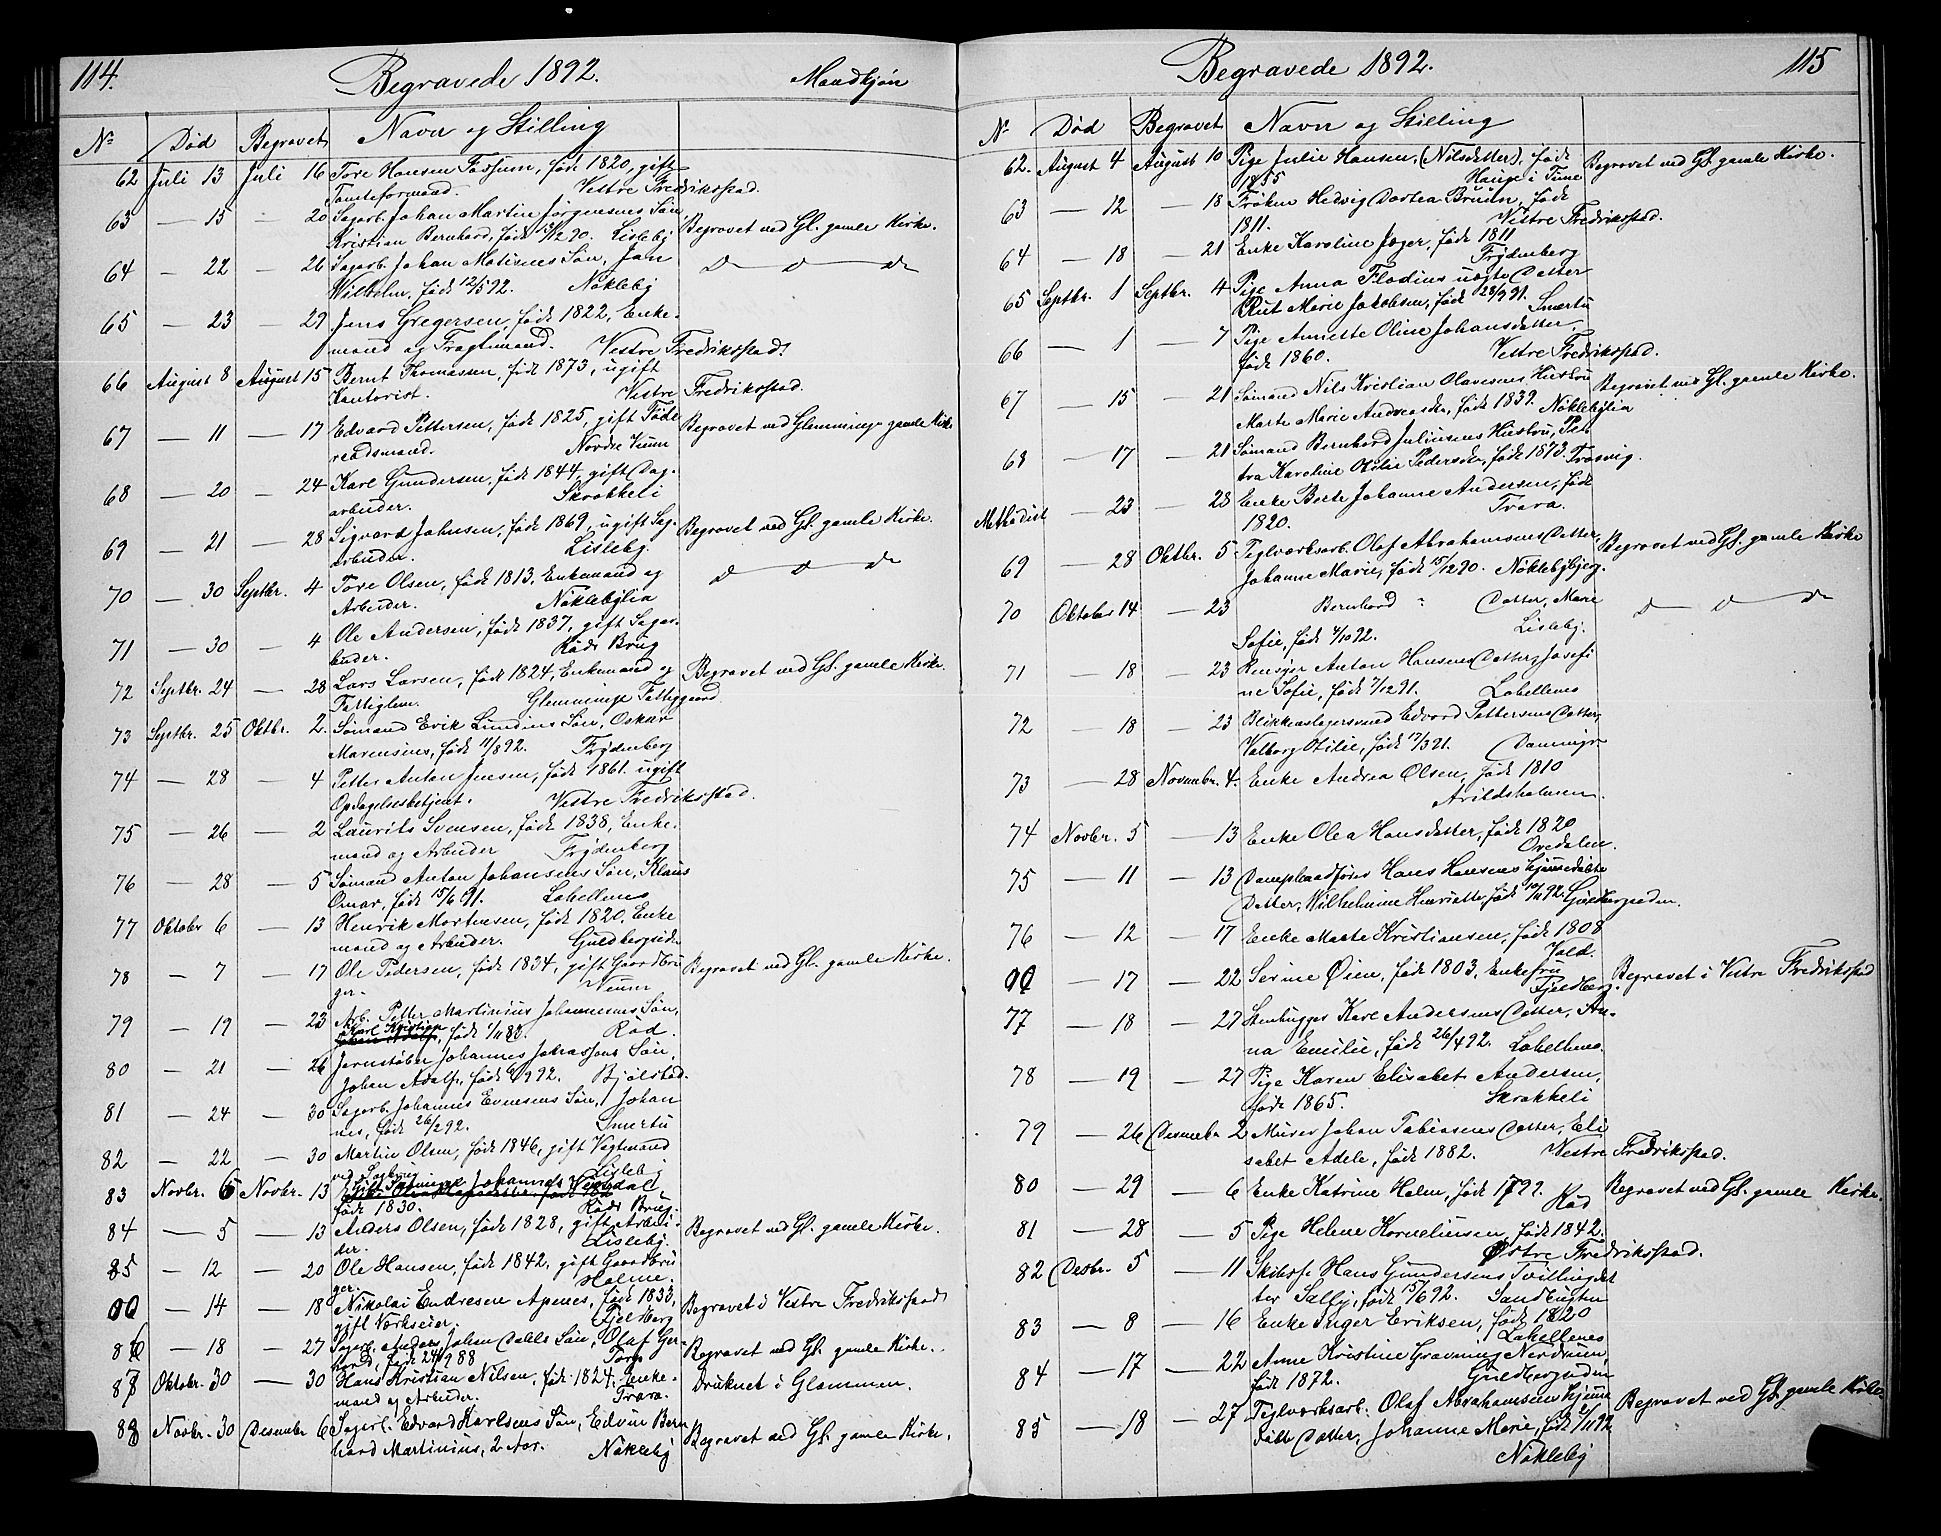 114.
Begravede 1892.
Mandkjøn
№ Død Begravet Navn og Stilling
62 Juli 13 Juli 16 Tore Hansen Fossum, født 1820, gift
Tomteformand. Vestre Fredriksstad.
63 — 15 - 20 Sagarb. Johan Martin Jørgensens Søn
Kristian Bernhard, født Lisleby Begravet ved Gl. gamle Kirke.
64 — 22 — 26 Sagarb. Johan Matisens Søn, Jan
Wilhelm, født 12/5 92. Nøkleby D D D
65 — 23 — 29 Jens Gregersen, født 1822, Enke-
mand og Fragtmand. Vestre Fredriksstad.
66 August 8 August 15 Bernt Thomassen, født 1873, ugift
Kontorist. Vestre Fredriksstad.
67 — 11 — 17 Edvard Pettersen, født 1825, gift Føde-
raadsmand. Nordre Veum Begravet ved Glemminge gamle Kirke
68 — 20 — 24 Karl Gundersen, født 1844, gift Dag-
arbeider. Skrokkeli
69 — 21 — 28 Sigvard Johnsen, født 1869, ugift Sag-
arbeider. Lisleby. Begravet ved Gl. gamle Kirke.
70 — 30 Septbr. 4 Tore Olsen, født 1813, Enkemand og
Arbeider. Nøklebylia D D D
71 — 30 — 4 Ole Andersen, født 1837, gift Sagar-
beider. Røds Brug
72 Septbr. 24 — 28 Lars Larsen, født 1824, Enkemand og
Fattiglem. Glemminge Fattiggaard Begravet ved Gl. gamle Kirke.
73 Septbr. 25 Oktbr. 2. Sømand Erik Lundins Søn, Oskar
Marensius, født 11/8 92. Frydenberg
74 — 28 — 4 Petter Anton Jensen, født 1861. ugift
Opdagelsesbetjent. Vestre Fredriksstad.
75 — 26 — 2 Laurits Svensen, født 1838, Enke-
mand og Arbeider Frydenberg
76 — 28 — 5 Sømand Anton Johansens Søn, Klaus
Omar, født 15/6 91. Labellenes
77 Oktober 6 — 13 Henrik Mortensen, født 1820, Enke
mand og Arbeider. Guldbergsiden
78 — 7 — 17 Ole Pedersen, født 1834, gift Gaardbru
ger. Veum Begravet ved Gl. gamle Kirke.
79 — 19 — 23 Arb. Petter Martinius Johannesens Søn,
Karl Kristian, født Rød.
80 — 21 — 26 Jernstøber Johannes Jonassens Søn,
Johan Adolf, født 92. Bjølstad.
81 — 24 — 30 Sagarb. Johannes Evensens Søn, Johan
nes, født 26/2 92. Smertu
82 — 22 — 30 Martin Olsen, født 1846, gift Vegtmand
ved Lisleby
83 Novbr. 6 Novbr. 13 Johannes
født 1830. Røds Brug.
84 — 5 — 13 Anders Olsen, født 1828, gift Arbei-
der. Lisleby. Begravet ved Gl. gamle Kirke.
85 — 12 — 20 Ole Hansen, født 1842, gift Gaardbru
ger. Holme.
00 — 14 — 18 Nikolai Endresen Apenes, født 1833,
gift Værkseier. Fjeldberg Begravet i Vestre Fredriksstad
86 — 18 — 27 Sagarb. Anders Johan Dahls Søn, Olaf Ger-
hard, født 88 Torp Begravet ved Gl. gamle Kirke.
87 Oktober 30 — 30 Hans Kristian Nilsen, født 1824, Enke-
mand og Arbeider. Trara. Druknet i Glommen.
88 Novbr. 30 Desember 6 Sagarb. Edvard Karlsens Søn, Edvin Bern
hard Martinius, 2 Aar. Nøkleby Begravet ved Gl. gamle Kirke.
Begravede 1892.
115
№ Død Begravet Navn og Stilling
62. August 4 August 10 Pige Julie Hansen, (Nilsdatter), født
1855 Hauge i Tune Begravet ved Gl. gamle Kirke.
63 — 12 — 18 Frøken Hedvig Dortea Bruun, født
1811. Vestre Fredriksstad.
64 — 18 — 21 Enke Karoline Jæger, født 1811
Frydenberg
65 Septbr. 1 Septbr. 4 Pige Anna Flodins uægte Datter
Rut Marie Jakobsen, født 28/9 91. Smertu
66 — 1 — 7 Pige Annette Oline Johansdatter,
født 1860. Vestre Fredriksstad.
67 — 15 — 21 Sømand Nils Kristian Olavesens Hustru
Marte Marie Andreasdr, født 1839. Nøklebylia Begravet ved Gl. gamle Kirke.
68 — 17 — 21 Sømand Bernhard Juliusens Hustru, Pet-
tra Karoline Otilie Pedersdr, født 1873. Trosvig.
Methodist — 23 — 28 Enke Berte Johanne Andersen, født
1820. Trara.
69 — 28 Oktbr. 5 Teglværksarb. Olaf Abrahamsens Datter,
Johanne Marie, født 15/12 90. Nøklebybjerg. Begravet ved Gl. gamle Kirke
70 Oktober 14 — 23 Bernhard Datter, Marie
Sofie, født 4/10 92. Lisleby. D D D
71 — 18 — 23 Anton Hansens Datter, Josefi
ne Sofie, født 7/12 91. Labellenes
72 — 18 — 23 Blikkenslagersvend Edvard Pettersens Datter,
Valborg Otilie, født 17/3 91. Damninge
73 — 28 Novembr. 4. Enke Andrea Olsen, født 1810
Arildsholmen.
74 Novbr. 5 — 13 Enke Olea Hansdatter, født 1820
Oredalen.
75 — 11 — 13 Dampbaadfører Hans Hansens hjemmedøbte
Datter, Wilhelmine Henriette, født 10/11 92. Guldbergsiden.
76 — 12 — 17 Enke Marte Kristiansen, født 1808
Jold.
00 — 17 — 22 Serine Øien, født 1803, Enkefru
Fjeldberg. Begravet i Vestre Fredriksstad
77 — 18 — 27 Stenhugger Karl Andersens Datter, An-
na Emilie, født 26/4 92. Labellenes.
78 — 19 — 27 Pige Karen Elisabet Andersen,
født 1865. Skrokkeli
79 — 26 Desember 2 Murer Johan Tobiasens Datter, Eli
sabet Adele, født 1882. Vestre Fredriksstad.
80 — 29 — 6 Enke Katrine Holm, født 1792.
Rød Begravet ved Gl. gamle Kirke.
81 — 28 — 5 Pige Helene Korneliusen, født 1842.
Østre Fredriksstad.
82 Desbr. 5 — 11 Skibsf. Hans Gundersens Tvillingdat
ter Sally, født 15/6 92. Sandbugten
83 — 8 — 16 Enke Inger Eriksen, født 1820
Labellenes
84 — 17 — 22 Anne Kristine Gravning Nordvien,
født 1872. Guldbergsiden
85 — 18 — 27 Teglværksarb. Olaf Abrahamsens hjemme
døbte Datter, Johanne Marie, født 92
Nøkleby Begravet ved Gl. gamle Kirke.